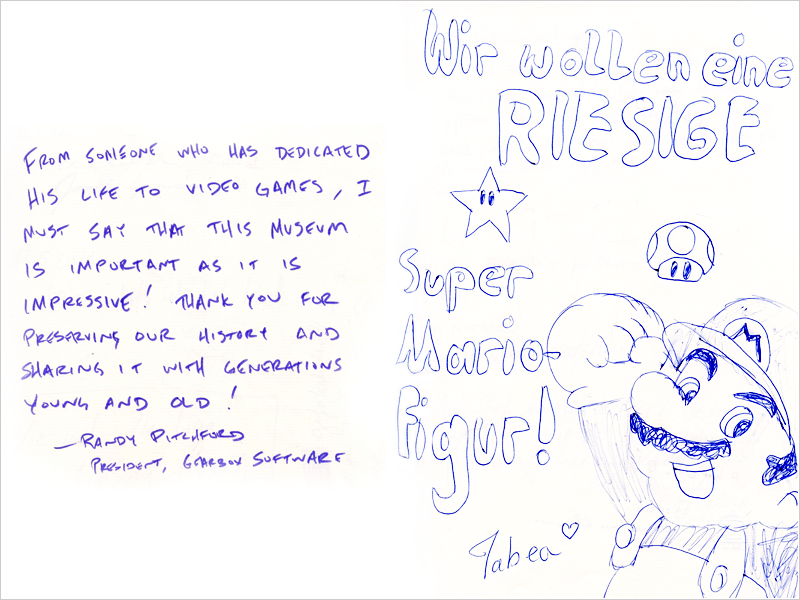 FROM SOMEONE WHO HAS DEDICATED
HIS LIFE TO VIDEO GAMES, I
MUST SAY THAT THIS MUSEUM
IS IMPORTANT AS IT IS
IMPRESSIVE! THANK YOU FOR
PRESERVING OUR HISTORY AND
SHARING IT WITH GENERATIONS
YOUNG AND OLD!
— RANDY PITCHFORD
PRESIDENT, GEARBOX SOFTWARE
Wir wollen eine
RIESIGE
Super
Mario-
Figur!
M
Tabea ♡